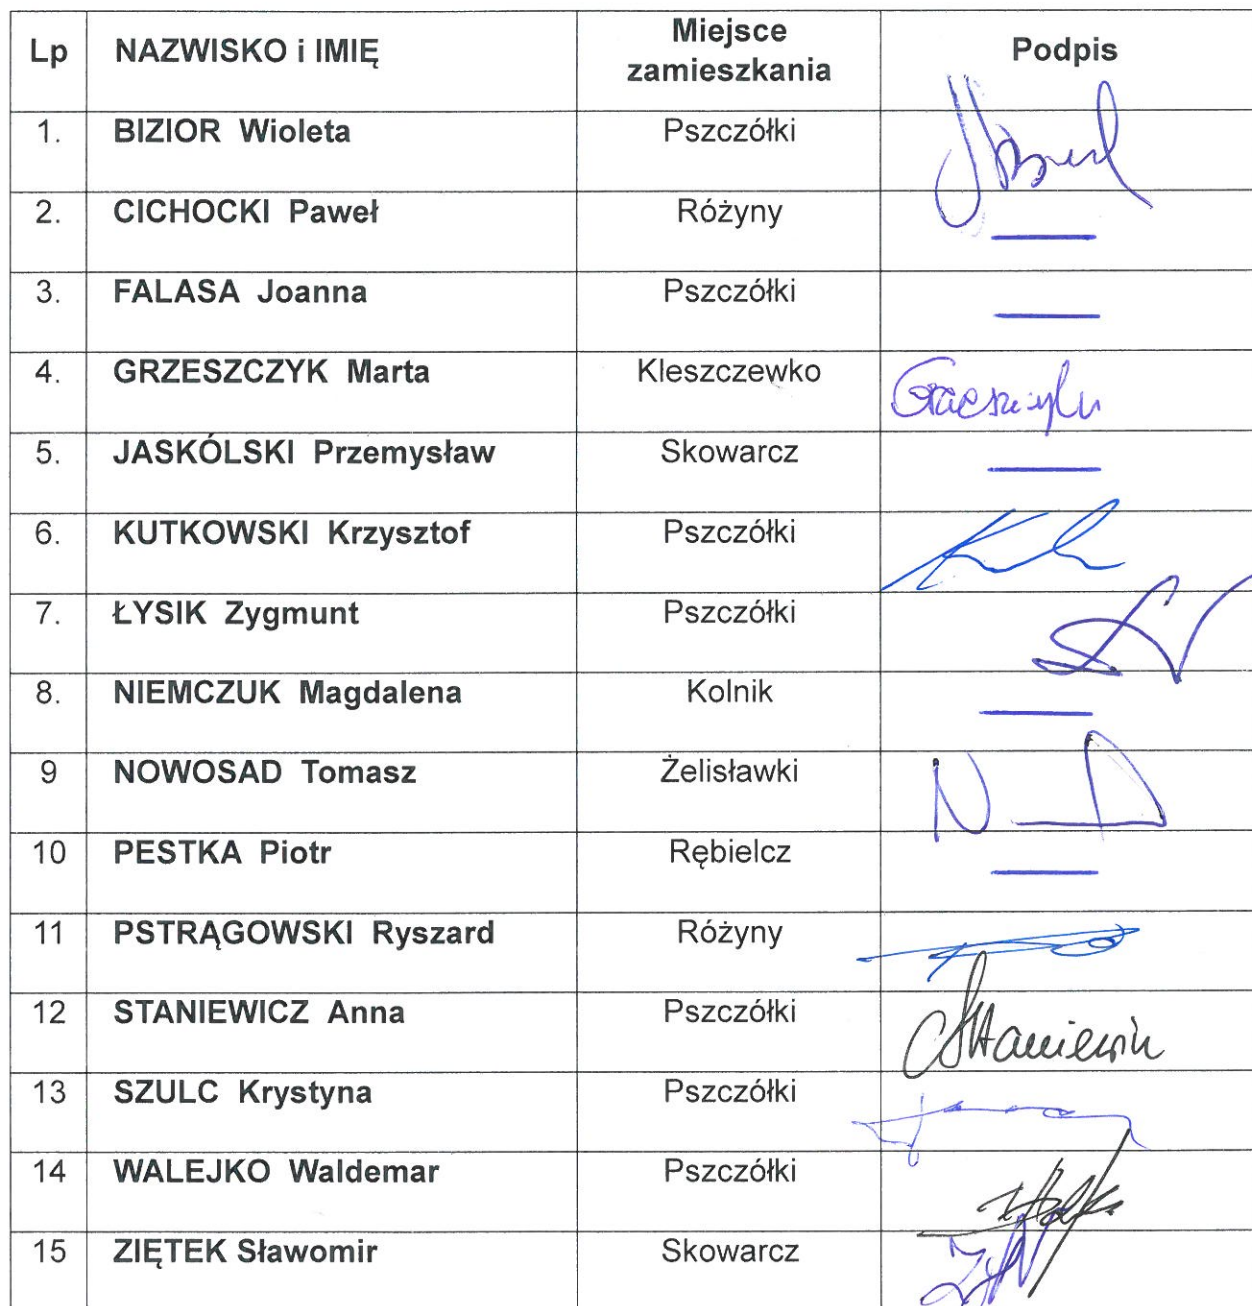 Lp NAZWISKO i IMIĘ Miejsce zamieszkania Podpis
1. BIZIOR Wioleta Pszczółki
2. CICHOCKI Paweł Różyny —
3. FALASA Joanna Pszczółki —
4. GRZESZCZYK Marta Kleszczewko
5. JASKÓLSKI Przemysław Skowarcz —
6. KUTKOWSKI Krzysztof Pszczółki
7. ŁYSIK Zygmunt Pszczółki
8. NIEMCZUK Magdalena Kolnik —
9 NOWOSAD Tomasz Żelisławki
10 PESTKA Piotr Rębielcz —
11 PSTRĄGOWSKI Ryszard Różyny
12 STANIEWICZ Anna Pszczółki
13 SZULC Krystyna Pszczółki
14 WALEJKO Waldemar Pszczółki
15 ZIĘTEK Sławomir Skowarcz